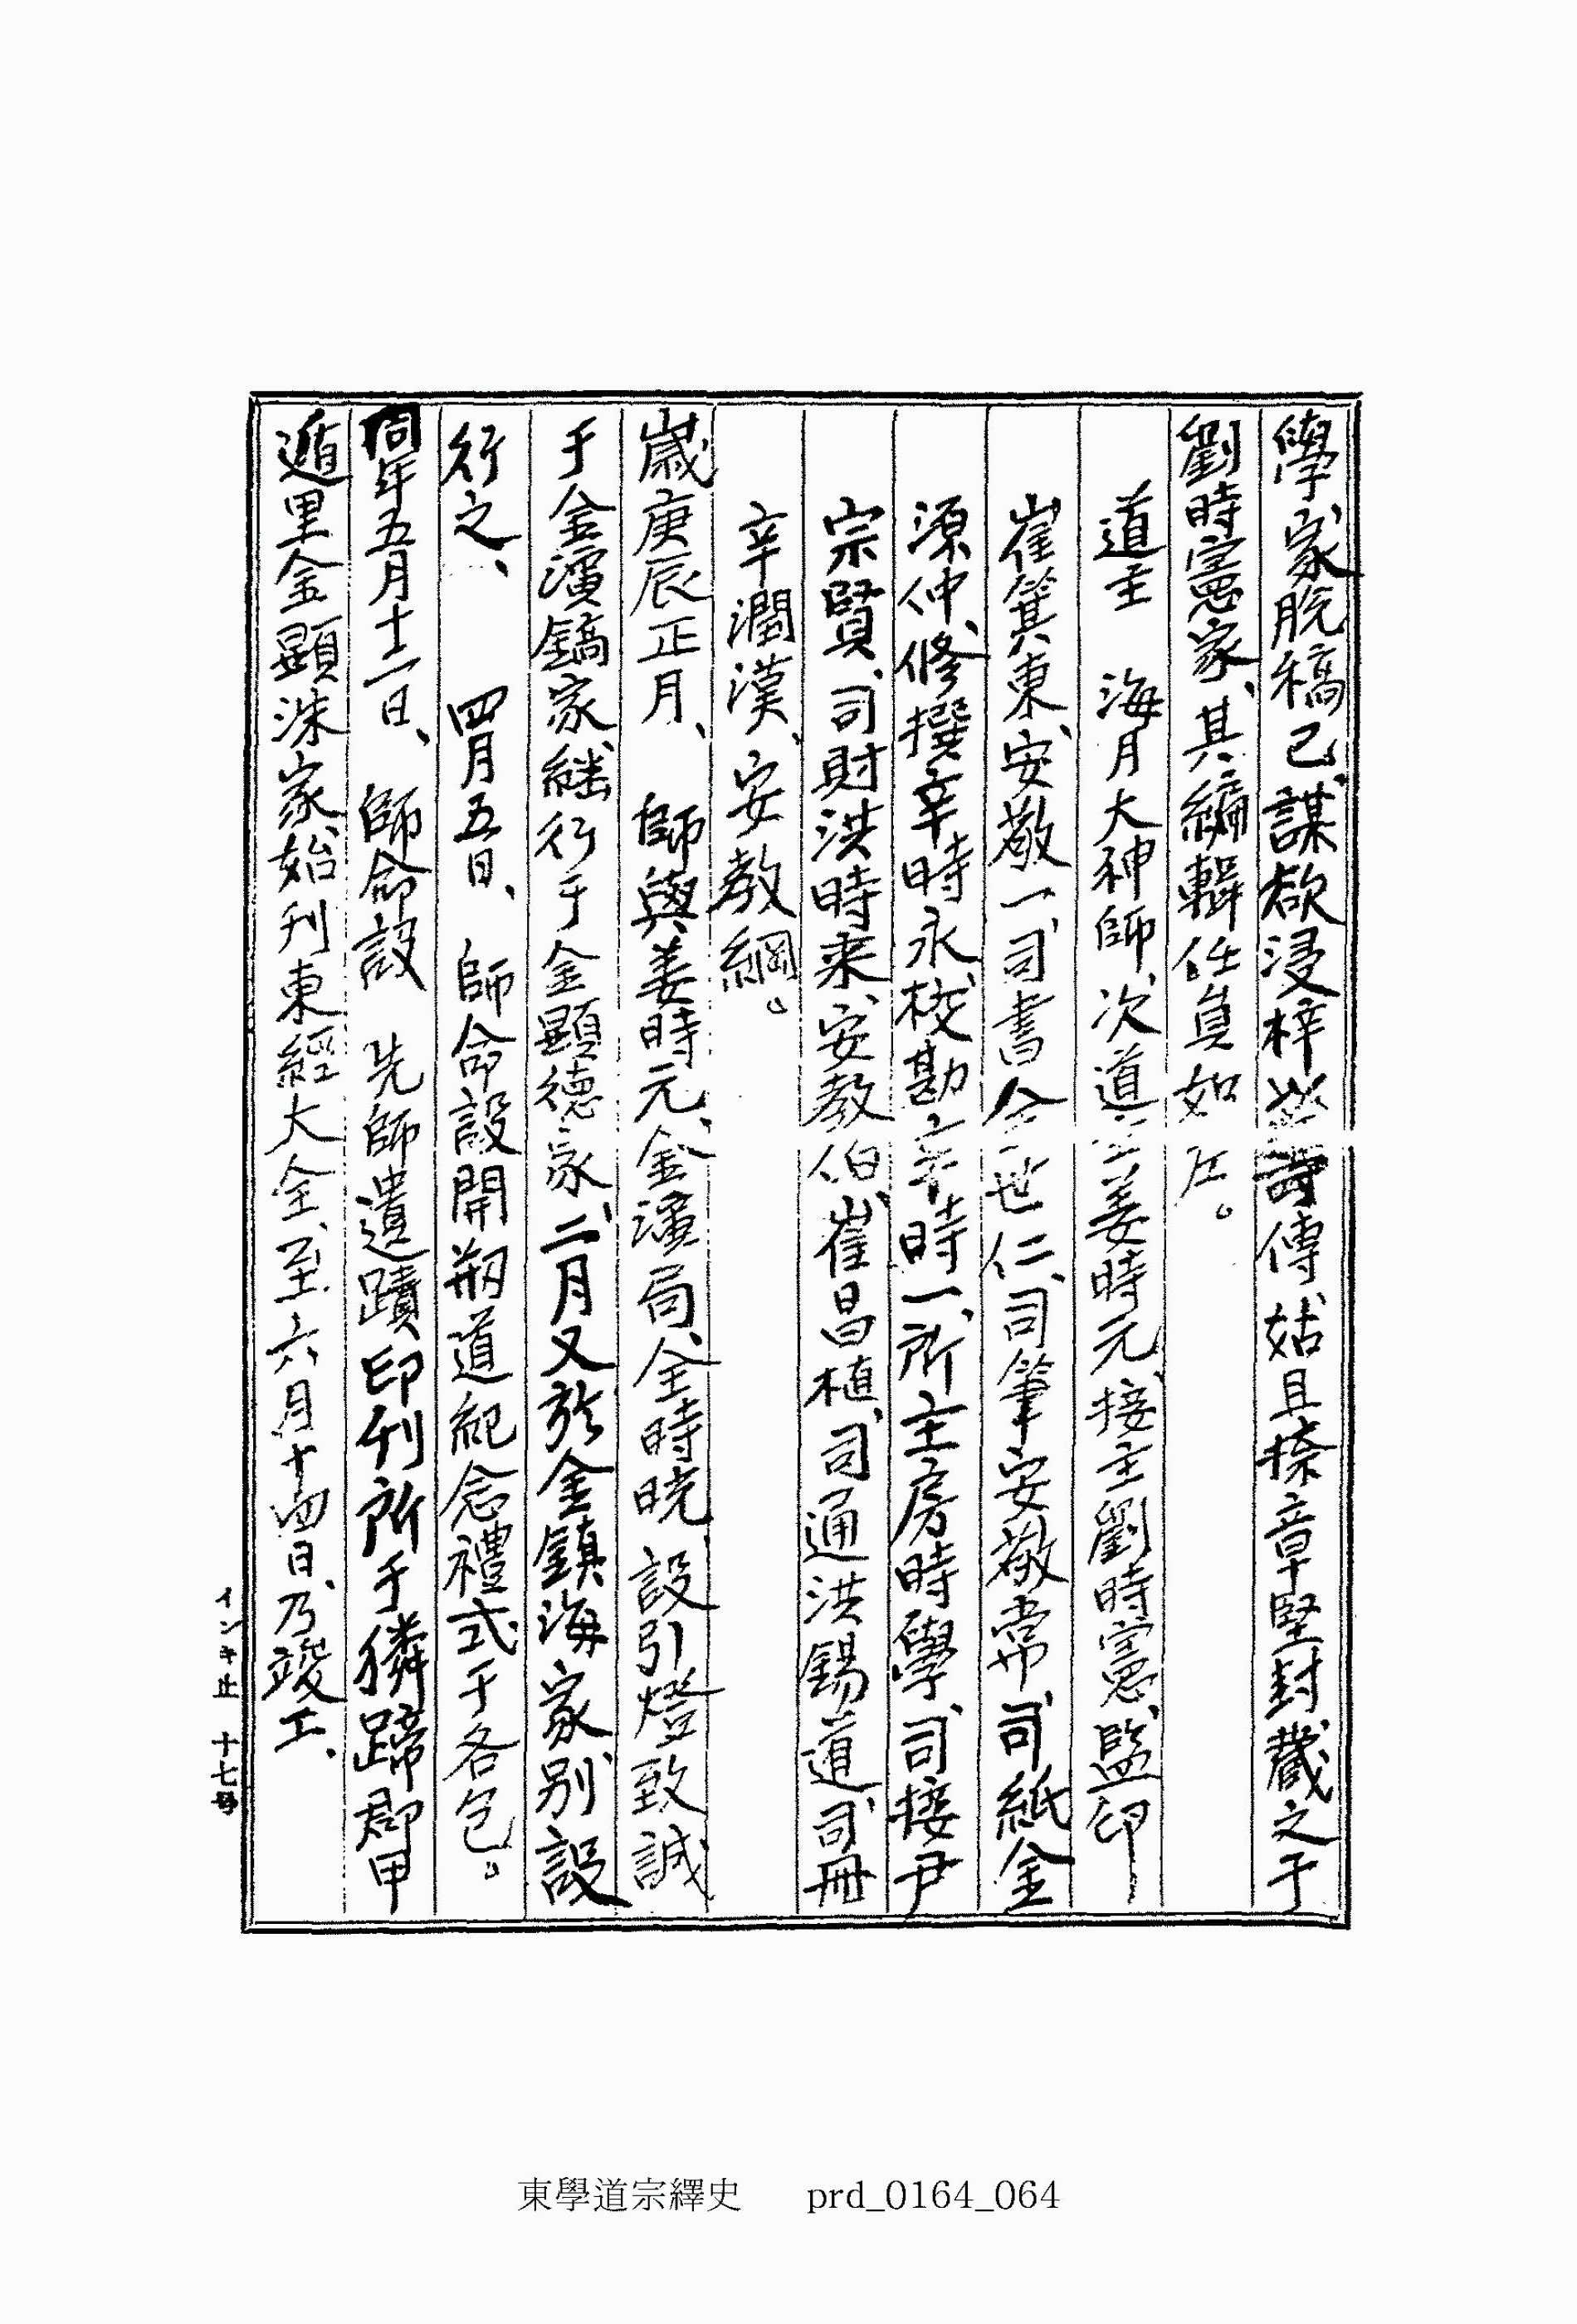 學、家脫稿已、謀欲浸梓 傳、姑且捺章堅封藏之于
劉時憲家、其編輯任員如左。
道主 海月大神師、次道主姜時元、接主劉時憲、監印
崔箕東、安敬一、司書全世仁、司筆安敬常、司紙金
源仲、修撰辛時永、校勘辛時一、所主房時學、司接尹
宗賢、司財洪時來、安教伯、崔昌植、司通洪錫道、司冊
辛潤漢、安教綱。
歲庚辰正月、 師與姜時元、金濱局、全時晄、設引燈致誠
于金濱鎬家、繼行于金顯德家、二月又於金鎭海家別設
行之、 四月五日、 師命設開刱道紀念禮式于各包。
同年五月十一日、 師命設 先師遺蹟印刊所于獜蹄郡甲
遁里金顯洙家、始刊東經大全、至六月十四日、乃竣工、
インキ止 十七号
東學道宗繹史 prd_0164_064